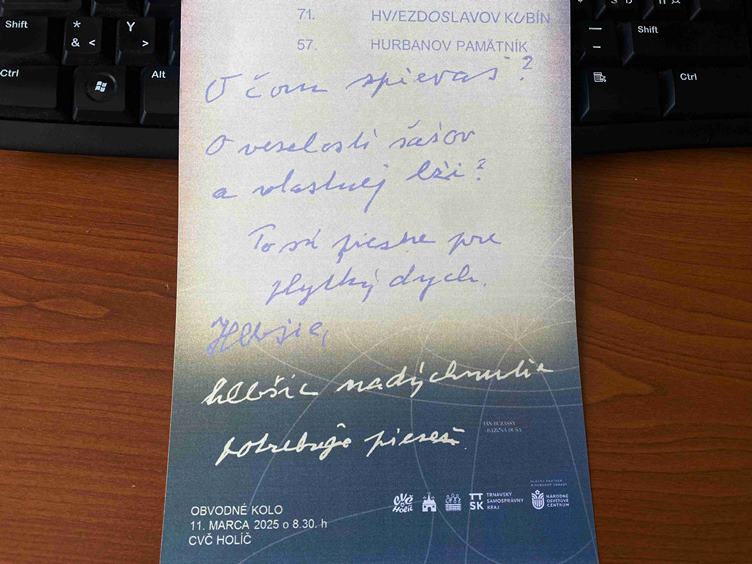 71. HVIEZDOSLAVOV KUBÍN
57. HURBANOV PAMÄTNÍK
O čom spievaš?
O veselosti šašov
a vlastnej lži?
To sú piesne pre
plytký dych.
Hlbšie,
hlbšie nadýchnutie
potrebuje pieseň.
JÁN BURASSY
OBVODNÉ KOLO
11. MARCA 2025 o 8.30. h
CVČ HOLÍČ
CVČ
Holíč
TT
SK
TRNAVSKÝ
SAMOSPRÁVNY
KRAJ
NÁRODNÉ
OSVETOVÉ
CENTRUM
Shift
*
& <
Y
>
Ctrl
Alt
Shift
Ctrl